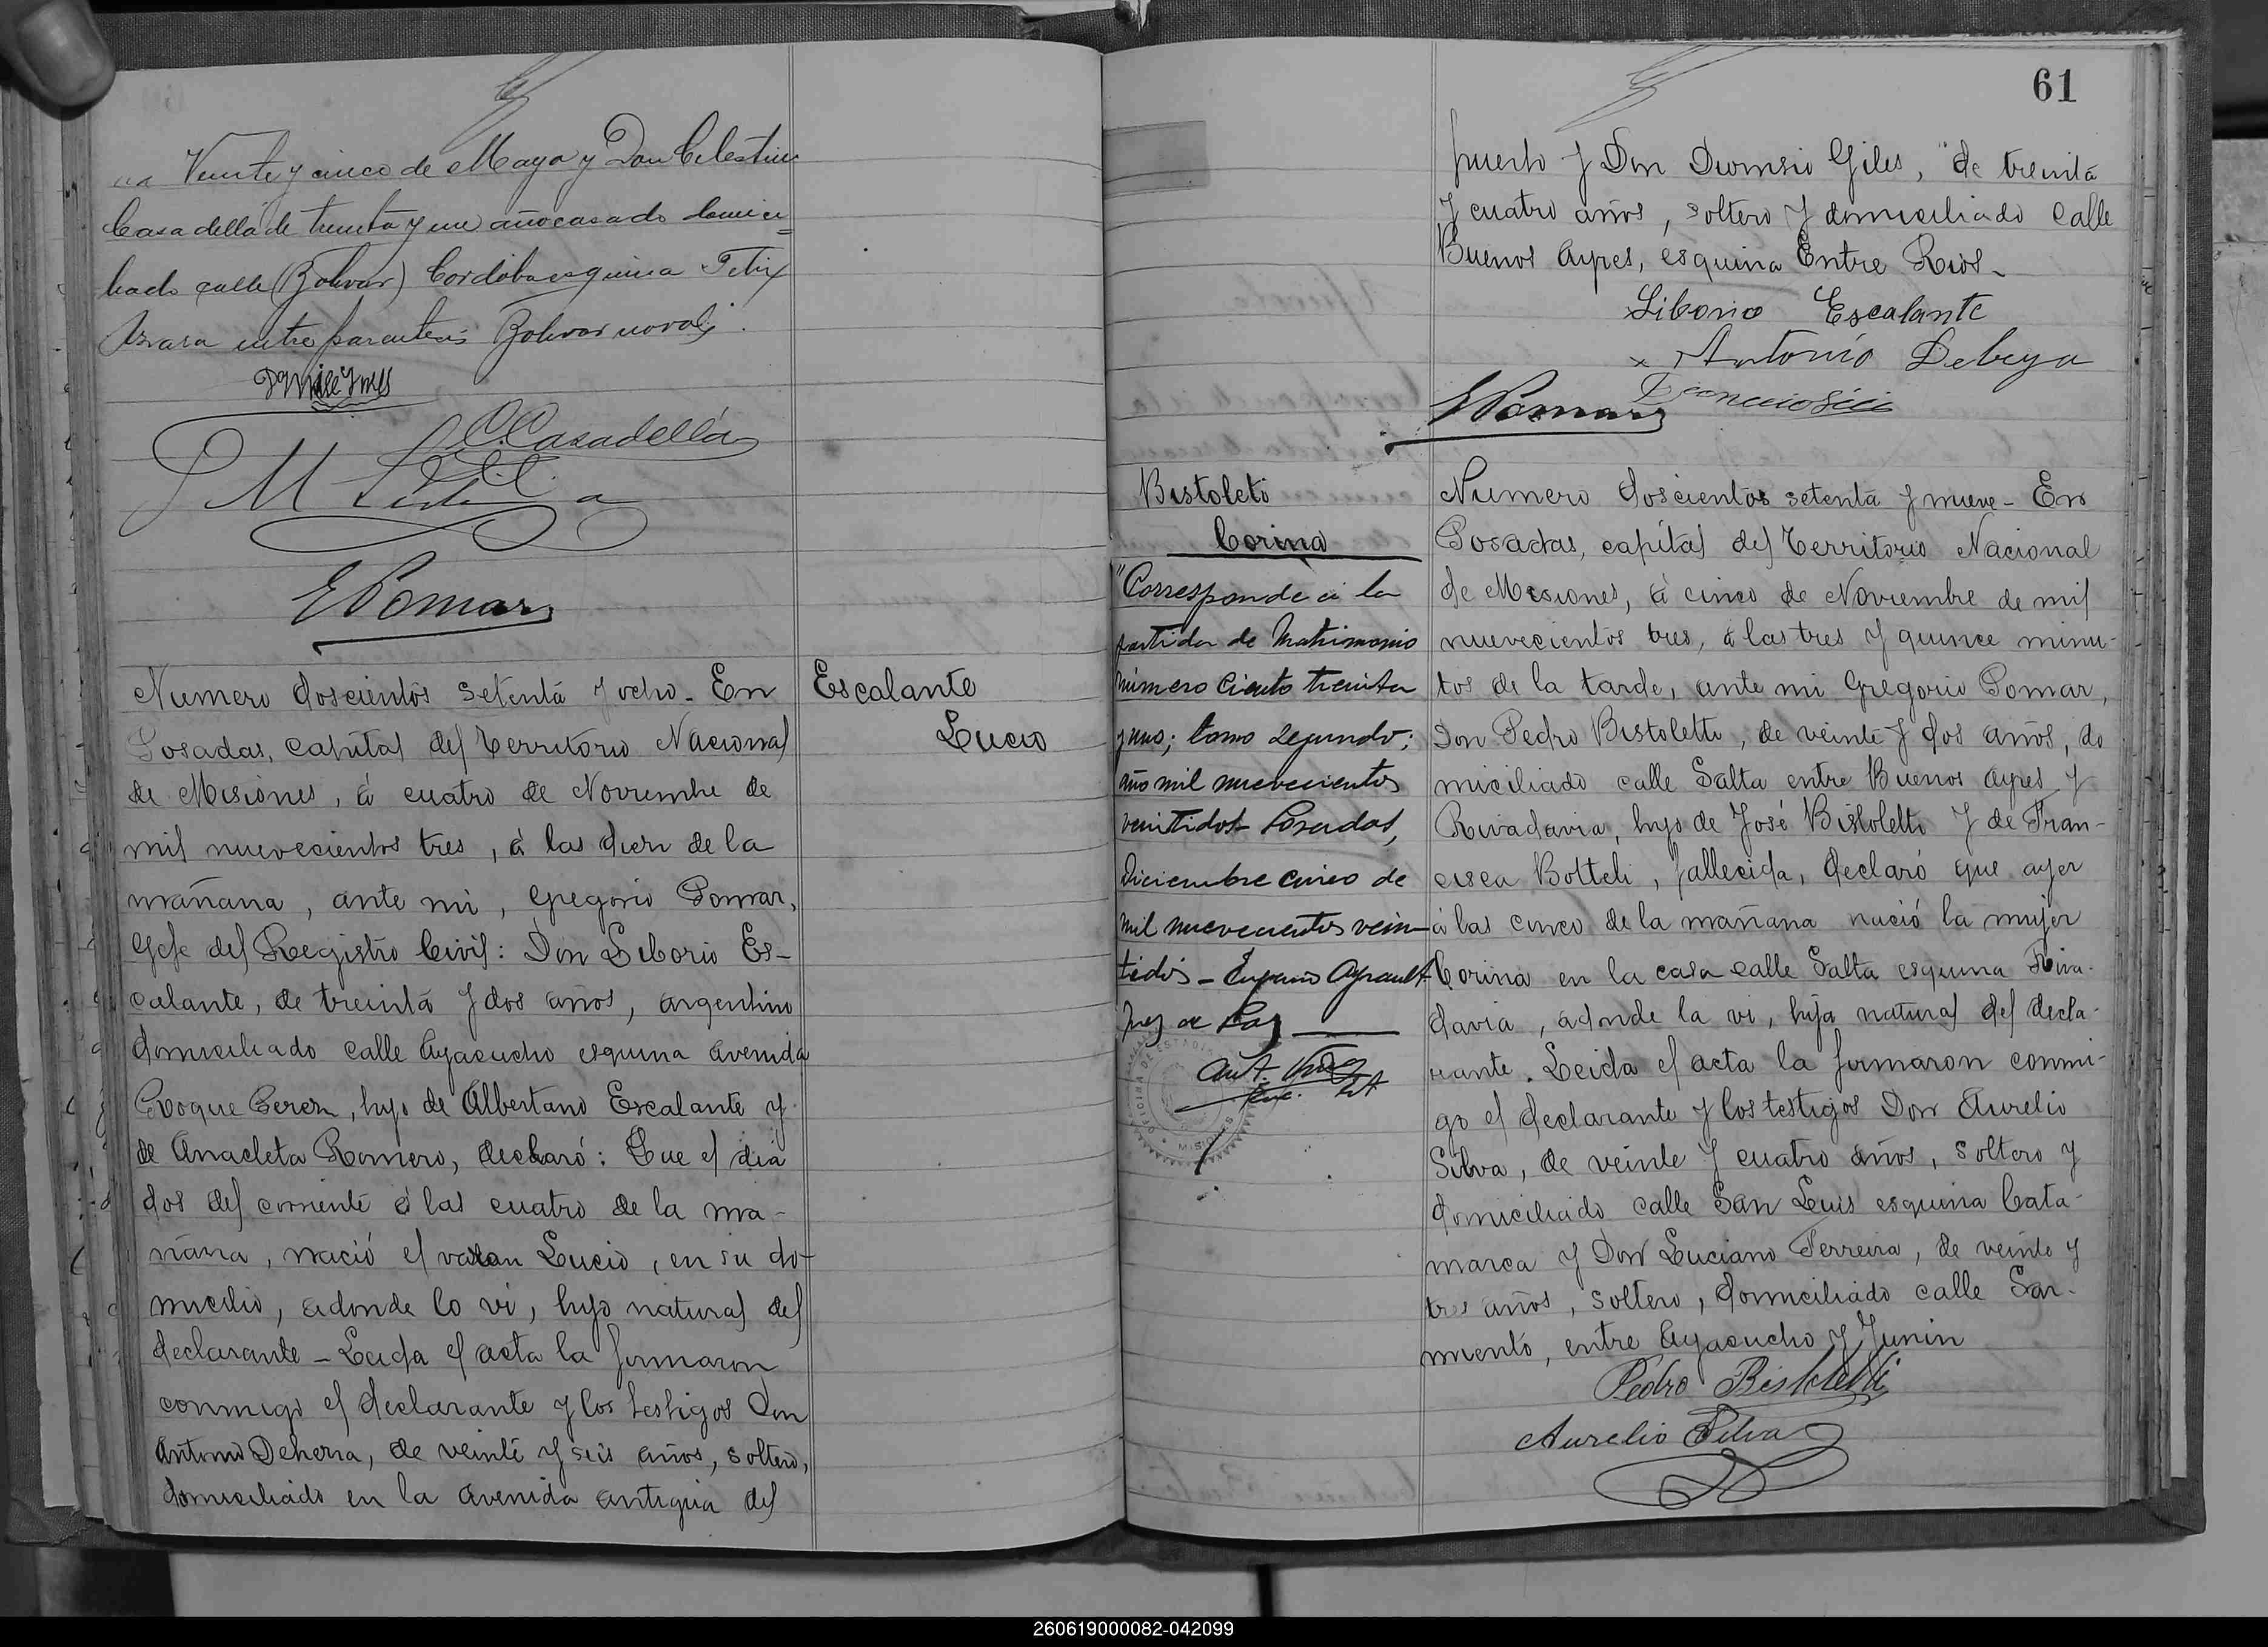 Veinte y cinco de Mayo y Don Celestino
Casadellá de treinta y un año casado domici=
liado calle (Bolivar) Cordoba esquina Felix
Azara entre parentesis Bolivar no vale.
C. Casadellá
GPomar
Numero doscientos setenta y ocho - En
Posadas, capital del Territorio Nacional
de Misiones, á cuatro de Noviembre de
mil nuevecientos tres, á las diez de la
mañana, ante mi, Gregorio Pomar,
Gefe del Registro Civil: Don Liborio Es-
calante, de treinta y dos años, argentino
domiciliado calle Ayacucho esquina avenida
Roque Perez, hijo de Albertano Escalante y
de Anacleta Romero, declaró: Que el dia
dos del corriente á las cuatro de la ma-
ñana, nació el varon Lucio, en su do-
micilio, adonde lo vi, hijo natural del
declarante - Leida el acta la firmaron
conmigo el declarante y los testigos Don
Antonio de veinte y seis años, soltero,
domiciliado en la avenida antigua del
Escalante
Lucio
61
puerto y Don Dionisio Giles, de treinta
y cuatro años, soltero y domiciliado calle
Buenos Ayres, esquina Entre Rios -
Liborio Escalante
x Antonio
GPomar
Bistoleti
Corina
"Corresponde á la
partida de Matrimonio
número Ciento treinta
y uno; tomo segundo;
año mil nuevecientos
veintidos - Posadas,
Diciembre cinco de
mil nuevecientos vein-
tidós -
Juez de Paz
OFICINA DE ESTADISTICA
MISIONES
Numero doscientos setenta y nueve - En
Posadas, capital del Territorio Nacional
de Misiones, á cinco de Noviembre de mil
nuevecientos tres, á las tres y quince minu-
tos de la tarde, ante mi Gregorio Pomar,
Don Pedro Bistoletto, de veinte y dos años, do
miciliado calle Salta entre Buenos Ayres y
Rivadavia, hijo de José Bistoletto y de Fran-
cisca Botteli, fallecida, declaró que ayer
á las cinco de la mañana nació la mujer
Corina en la casa calle Salta esquina Riva-
davia, adonde la vi, hija natural del decla-
rante. Leida el acta la firmaron conmi-
go el declarante y los testigos Don Aurelio
Silva, de veinte y cuatro años, soltero y
domiciliado calle San Luis esquina Cata-
marca y Don Luciano Ferreira, de veinte y
tres años, soltero, domiciliado calle Sar-
miento, entre Ayacucho y Junin
Pedro Bistoletti
Aurelio Silva
260619000082-042099